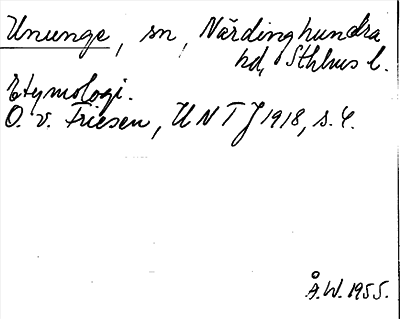 Ununge, sn, Närdinghundra
hd, Sthlms l.
Etymologi.
O. v. Friesen, UNTJ 1918, s. 4.
Å.W. 1955.